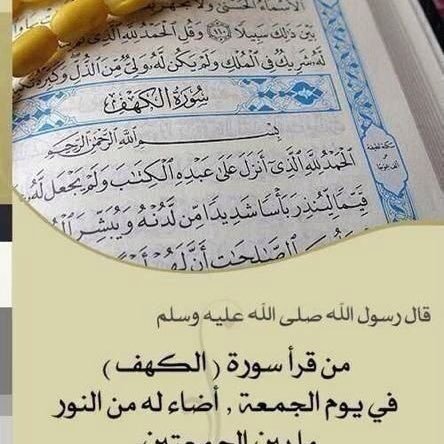 ٱلْأَسْمَآءُ ٱلْحُسْنَىٰ وَلَا تَجْهَرْ
بَيْنَ ذَٰلِكَ سَبِيلًا ١١٠ وَقُلِ ٱلْحَمْدُ لِلَّهِ ٱلَّذِى
لَّهُۥ شَرِيكٌ فِى ٱلْمُلْكِ وَلَمْ يَكُن لَّهُۥ وَلِىٌّ مِّنَ ٱلذُّلِّ وَكَبِّرْهُ
سُورَةُ الكَهْفِ
بِسْمِ ٱللَّهِ ٱلرَّحْمَٰنِ ٱلرَّحِيمِ
ٱلْحَمْدُ لِلَّهِ ٱلَّذِىٓ أَنزَلَ عَلَىٰ عَبْدِهِ ٱلْكِتَٰبَ وَلَمْ يَجْعَل لَّهُۥ
قَيِّمًا لِّيُنذِرَ بَأْسًا شَدِيدًا مِّن لَّدُنْهُ وَيُبَشِّرَ
ٱلصَّٰلِحَٰتِ أَنَّ لَهُمْ
قال رسول الله صلى الله عليه وسلم
من قرأ سورة ( الكهف )
في يوم الجمعة , أضاء له من النور
ما بين الجمعتين